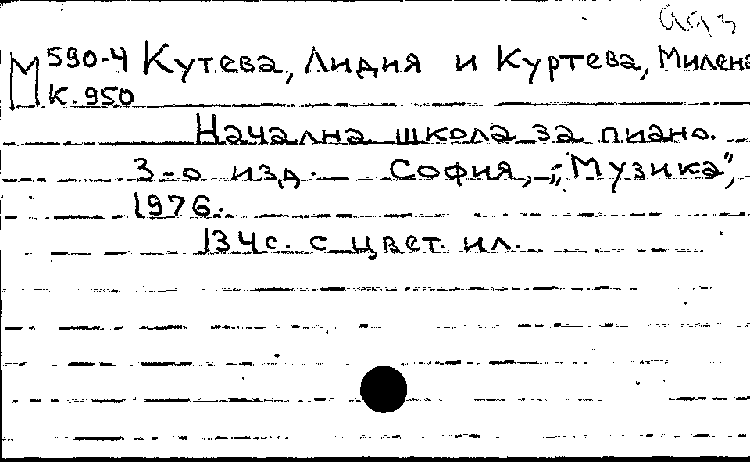 М 590-4 Кутева, Лидия и Куртева, Милена
К. 950
Начална школа за пиано.
3-о изд. София, „Музика",
1976.
134 с. с цвет. ил.